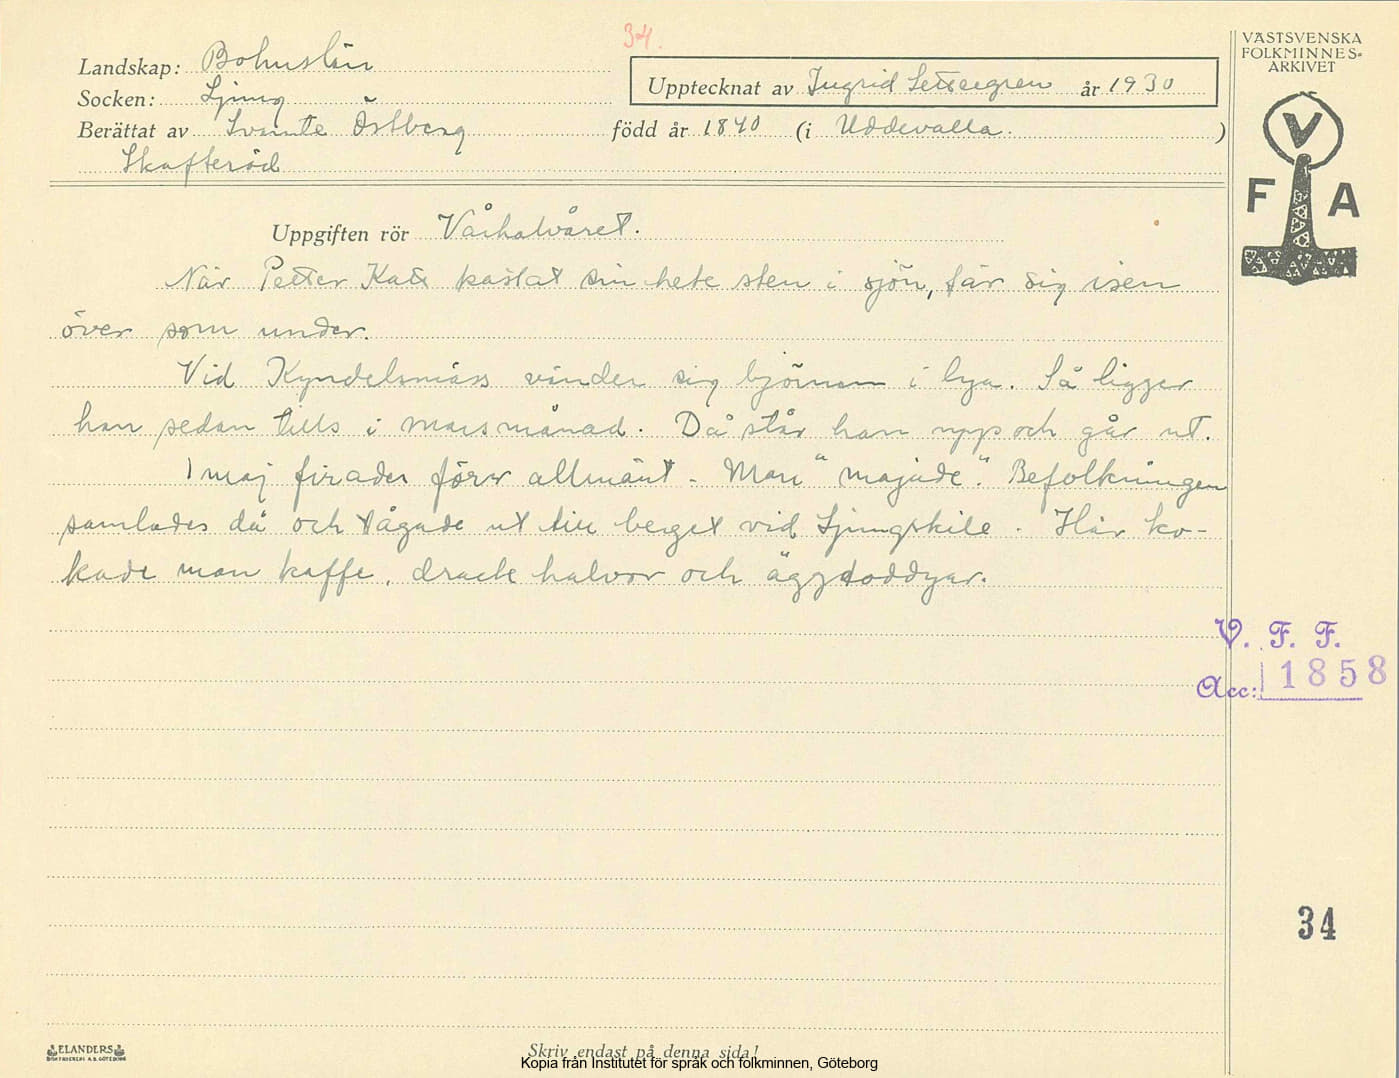 34.
VÄSTSVENSKA
FOLKMINNES-
ARKIVET
Landskap: Bohuslän
Upptecknat av Ingrid år 1930
Socken: Ljung
Berättat av Svante Östberg född år 1840 (i Uddevalla. )
Skafteröd
V
F A
Uppgiften rör Vårhalvåret.
När Petter Katt kastat sin hete sten i sjön, tär sig isen
över som under.
Vid Kyndelsmäss vänder sig björnen i lya. Så ligger
han sedan tills i mars månad. Då står han upp och går ut.
1 maj firades förr allmänt - Man "majade". Befolkningen
samlades då och tågade ut till berget vid Ljungskile. Här ko-
kade man kaffe, drack halvor och äggtoddyar.
V. F. F.
Acc: 1858
34
ELANDERS
BOKTRYCKERI A.B. GÖTEBORG
Skriv endast på denna sida!
Kopia från Institutet för språk och folkminnen, Göteborg